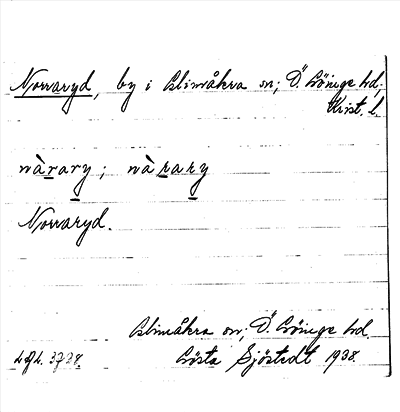 Norraryd, by i Glimåkra sn; Ö. Göinge hd,
Krist. l.
nàrary; nàrary
Norraryd.
Glimåkra sn; Ö. Göinge hd.
Gösta Sjöstedt 1938.